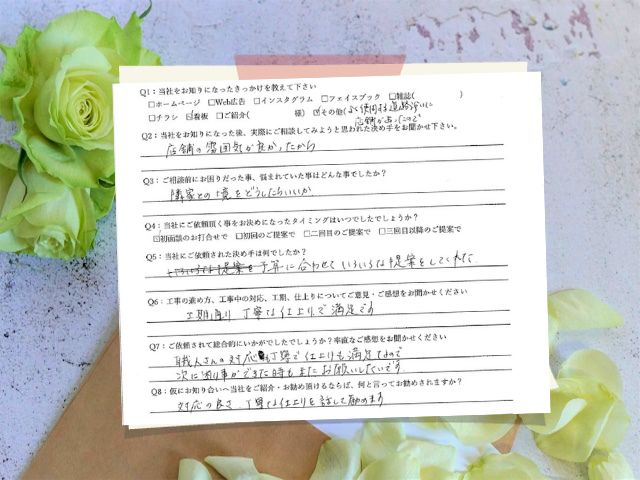 Q1：当社をお知りになったきっかけを教えて下さい
□ホームページ □Web広告 □インスタグラム □フェイスブック □雑誌( )
□チラシ ☑看板 □ご紹介( 様) ☑その他(よく使用する道路沿いに
店舗があったので
Q2：当社をお知りになった後、実際にご相談してみようと思われた決め手をお聞かせ下さい。
店舗の雰囲気が良かったから
Q3：ご相談前にお困りだった事、悩まれていた事はどんな事でしたか？
隣家との境をどうしたらいいか
Q4：当社にご依頼頂く事をお決めになったタイミングはいつでしたでしょうか？
☑初面談のお打合せで □初回のご提案で □二回目のご提案で □三回目以降のご提案で
Q5：当社に依頼された決め手は何でしたか？
予算に合わせていろいろな提案をしてくれた
Q6：工事の進め方、工事中の対応、工期、仕上りについてご意見・ご感想をお聞かせください
工期通り 丁寧な仕上りで満足です
Q7：ご依頼されて総合的にいかがでしたでしょうか？率直なご感想をお聞かせください
職人さんの対応も丁寧で仕上りも満足なので
次に造り事ができた時もまたお願いしたいです
Q8：仮にお知り合いへ当社をご紹介・お勧め頂けるならば、何と言ってお勧めされますか？
対応の良さ、丁寧な仕上りを話して勧めます